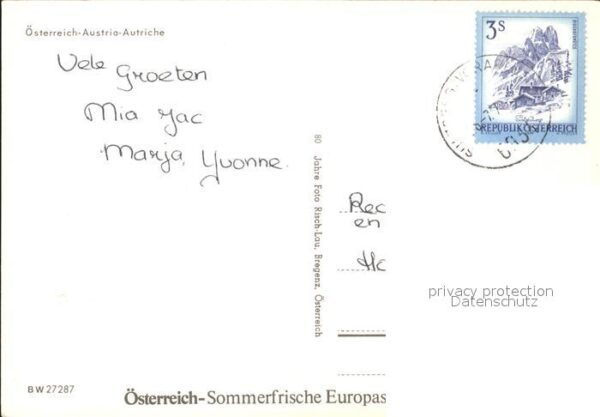 Österreich-Austria-Autriche
Vele Groeten
Mia Jac
Marja, Yvonne.
3 S
REPUBLIK ÖSTERREICH
80 Jahre Foto Risch-Lau, Bregenz, Österreich
en
privacy protection
Datenschutz
BW 27287
Österreich-Sommerfrische Europas